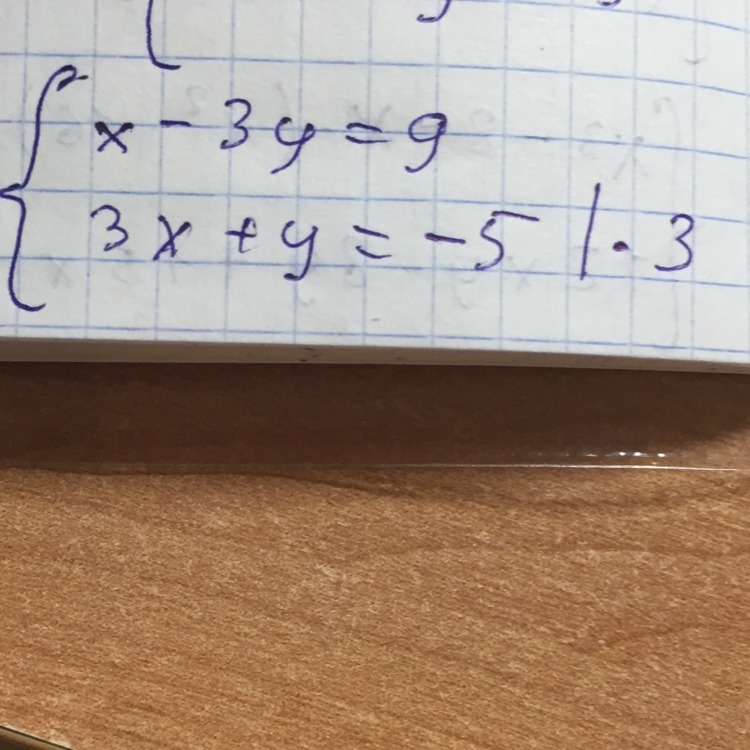 x - 3y = 9
3x + y = -5 | · 3